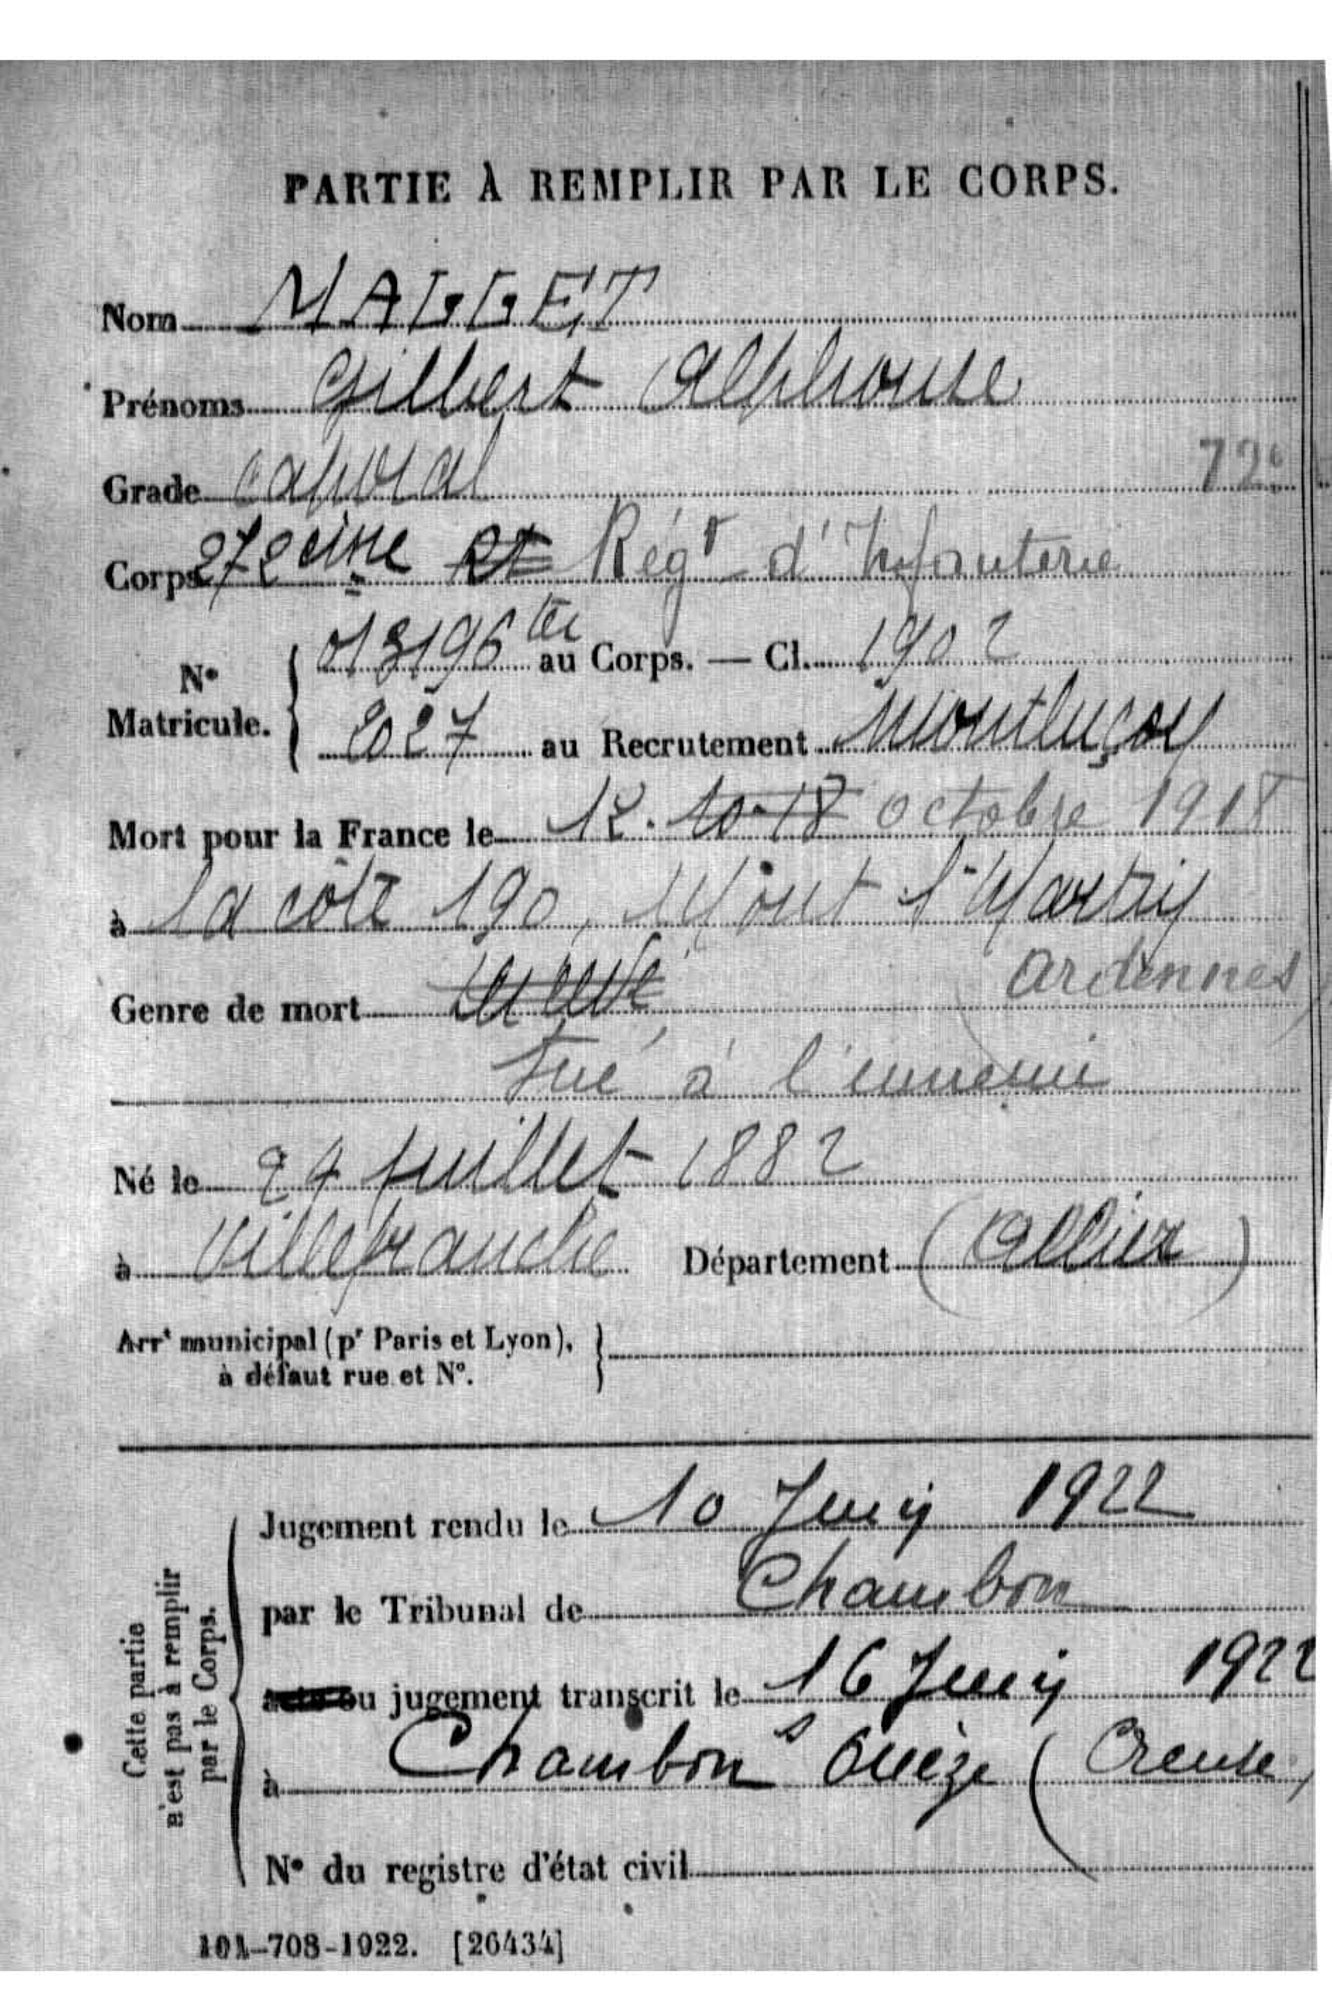 PARTIE À REMPLIR PAR LE CORPS.
Nom MAGGET
Prénoms Gilbert Alphonse
Grade caporal 72e
Corps 272eme Rt Régt d'Infanterie
No Matricule. { 013196 ter au Corps. — Cl. 1902
2027 au Recrutement Montluçon
Mort pour la France le 12. 10-18 octobre 1918
à la côte 190, Mont St Martin
(Ardennes)
Genre de mort
tué à l'ennemi
Né le 24 juillet 1882
à Villefranche Département (Allier)
Arrt municipal (pr Paris et Lyon), }
à défaut rue et No.
Cette partie
n'est pas à remplir
par le Corps.
Jugement rendu le 10 Juin 1922
par le Tribunal de Chambon
acte ou jugement transcrit le 16 Juin 1922
à Chambon s Ouèze (Creuse)
No du registre d'état civil
101-708-1922. [26434]